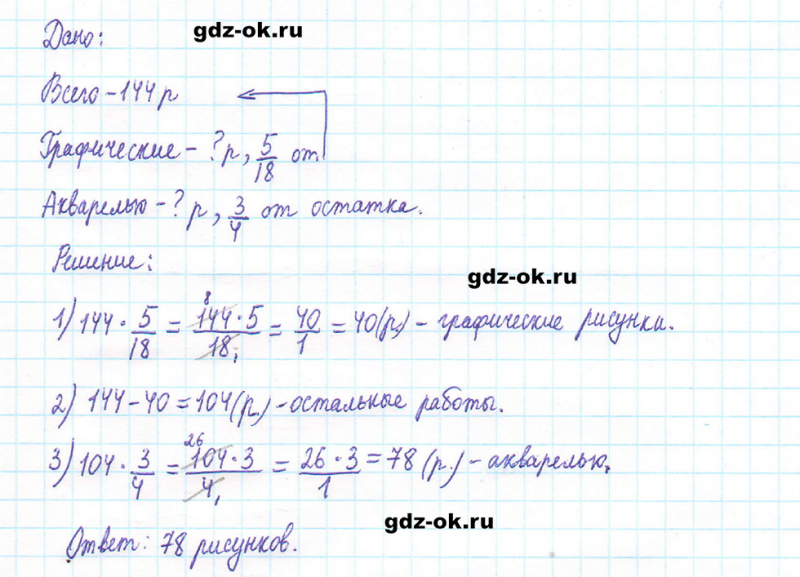 gdz-ok.ru
Дано:
Всего - 144 р
Графические - ? р, 5/18 от
Акварелью - ? р, 3/4 от остатка.
Решение:
gdz-ok.ru
1) 144 · 5/18 = 144 8 · 5/18 1 = 40/1 = 40 (р.) - графические рисунки.
2) 144 - 40 = 104 (р.) - остальные работы.
3) 104 · 3/4 = 104 26 · 3/4 1 = 26 · 3/1 = 78 (р.) - акварелью.
gdz-ok.ru
Ответ: 78 рисунков.